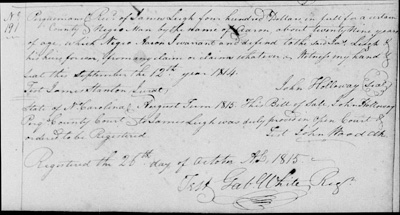 No 191
Perquimans Recd of James Leigh four hundred Dollars in full for a certain
County Negro Man by the name of Aaron about twenty Nine years
of age which Negro Aaron I warrant and defend to the said Jas Leigh &
his heirs forever from any claim or claims whatever as Witness my hand
Seal this September the 12th year 1814.
Test James Stanton Jurat John Holloway Seal
State of N Carolina August Term 1815 This Bill of Sale John Holloway
Perqs County Court to James Leigh was duly proven in open Court &
ordered to be Registered Test John Wood Clk
Registered the 26th day of October AD. 1815
Test Gab. White Regr